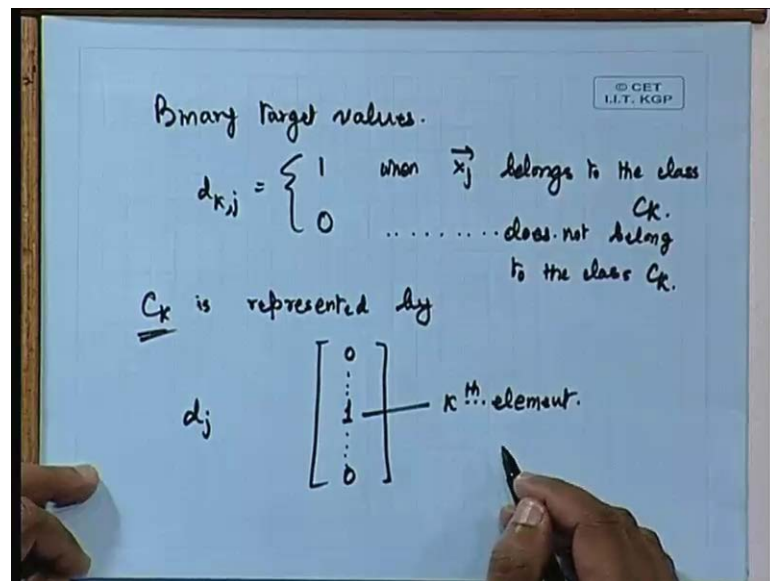 © CET
I.I.T. KGP
Binary Target values.
d_{k,j} = { 1 when \vec{x_j} belongs to the class C_K.
0 .......... does not belong to the class C_K.
C_K is represented by
d_j [ 0 ⋮ 1 ⋮ 0 ] — K^{th} element.